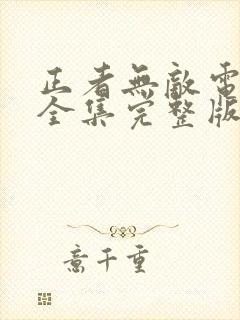 正者無敵電
全集完整版
意千重